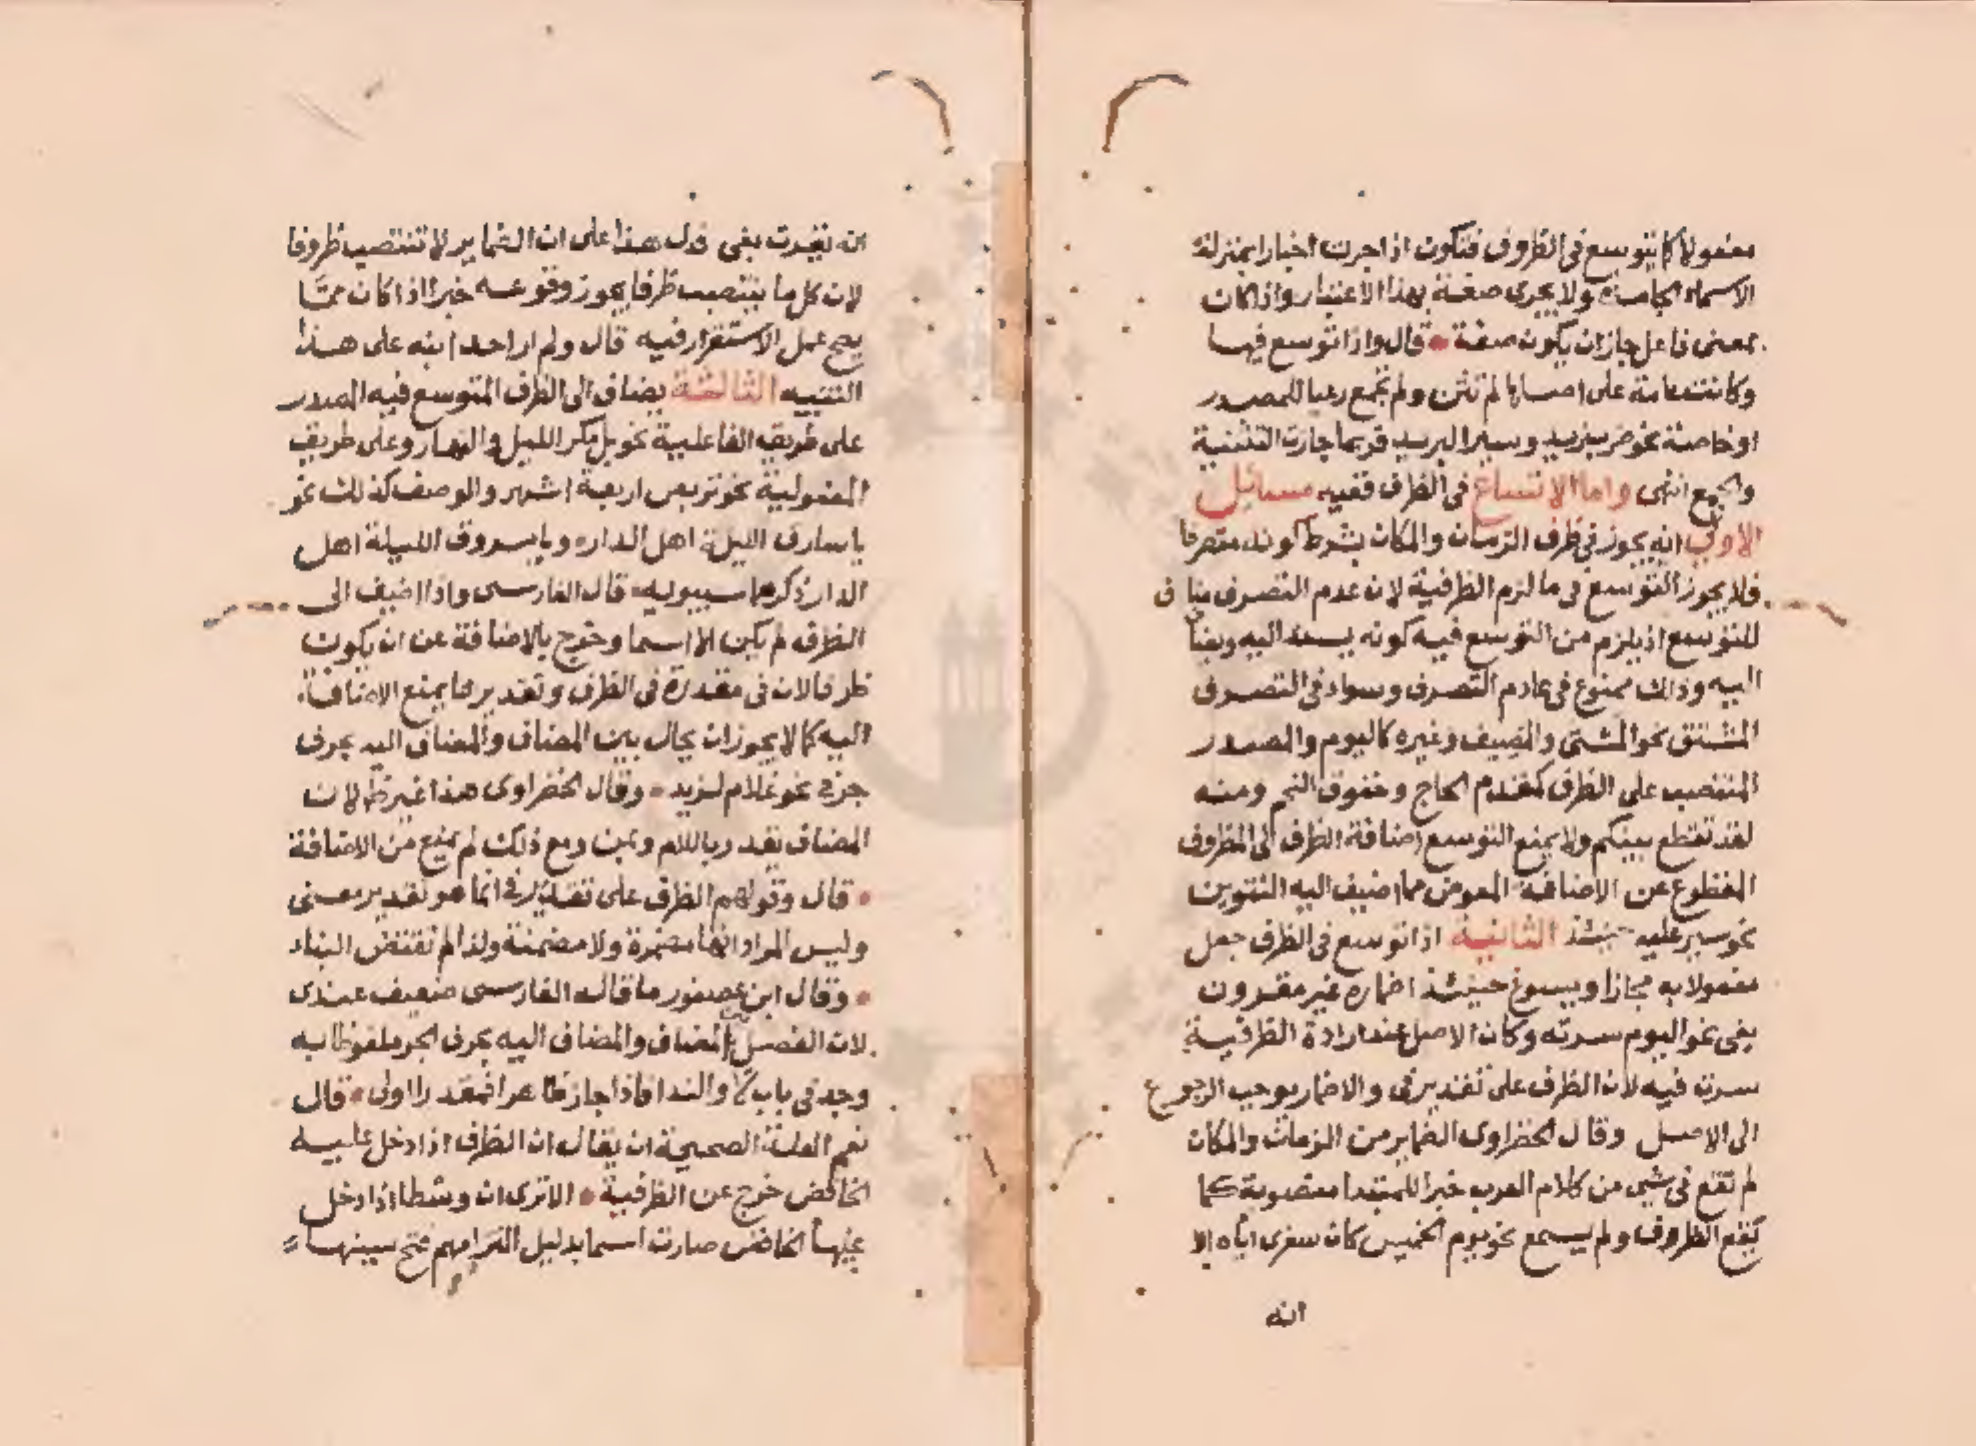 مفعولا كما يتوسع في الظروف فتكون اذا جرت اخبارا بمنزلة
الاسماء الجامدة ولا يجرى صفة بهذا الاعتبار واذا كان
بمعنى فاعل جاز ان يكون صفة قال واذا توسع فيها
وكانت عامة على اصلها لم تثن ولم تجمع رعيا للمصدر
او خاصة نحو ضرب زيد وسير البريد فربما جازت التثنية
والجمع انتهى واما الاتساع في الظرف ففيه مسائل
الاولى انه يجوز في ظرف الزمان والمكان بشرط كونه متصرفا
فلا يجوز التوسع في ما لزم الظرفية لان عدم التصرف مناف
للتوسع اذ يلزم من التوسع فيه كونه يسند اليه ويضاف
اليه وذلك ممنوع في عادم التصرف وسواء في التصرف
المشتق نحو المشتى والمصيف وغيره كاليوم والمصدر
المنتصب على الظرف كمقدم الحاج وخفوق النجم ومنه
لقد تقطع بينكم ولا يمنع التوسع اضافة الظرف الى المظروف
المقطوع عن الاضافة المعوض مما اضيف اليه التنوين
نحو سير عليه حينئذ الثانية اذا توسع في الظرف جعل
مفعولا به مجازا ويسوغ حينئذ اضماره غير مقرون
بفى نحو اليوم سرته وكان الاصل عند ارادة الظرفية
سرت فيه لان الظرف على تقدير في والاضمار يوجب الرجوع
الى الاصل وقال الخضراوى الضماير من الزمان والمكان
لم تقع في شى من كلام العرب خبرا للمبتدا منصوبة كما
يقع الظروف ولم يسمع نحو يوم الخميس كان سفرى اياه الا
انه
انه نقيدت بفى فدل هذا على ان الضماير لا تنتصب ظروفا
لان كل ما ينتصب ظرفا يجوز وقوعه خبرا اذا كان مما
يصح عمل الاستقرار فيه قال ولم ار احدا نبه على هذا
التنبيه الثالثة يضاف الى الظرف المتوسع فيه المصدر
على طريق الفاعلية نحو بل مكر الليل والنهار وعلى طريق
المفعولية نحو تربص اربعة اشهر والوصف كذلك نحو
يا سارق الليلة اهل الدار ويا مسروق الليلة اهل
الدار ذكرهما سيبويه قال الفارسى واذا اضيف الى
الظرف لم يكن الا اسما وخرج بالاضافة عن ان يكون
ظرفا لان في مقدرة في الظرف وتقديرها يمنع الاضافة
اليه كما لا يجوز ان يحال بين المضاف والمضاف اليه بحرف
جر في نحو غلام لزيد وقال الخضراوى هذا غير ظ لان
المضاف يقدر باللام وبمن ومع ذلك لم يمنع من الاضافة
قال وقولهم الظرف على تقدير في انما هو تقدير معنى
وليس المراد انها مضمرة ولا مضمنة ولذا لم تقتض البناء
وقال ابن عصفور ما قاله الفارسى ضعيف عندى
لان الفصل بين المضاف والمضاف اليه بحرف الجر ملفوظا به
وجد في باب لا والندا فاذا جاز ظاهرا فمقدرا اولى قال
نعم العلة الصحيحة ان يقال ان الظرف اذا دخل عليه
الخافض خرج عن الظرفية الا ترى ان وسطا اذا دخل
عليها الخافض صارت اسما بدليل التزامهم فتح سينها